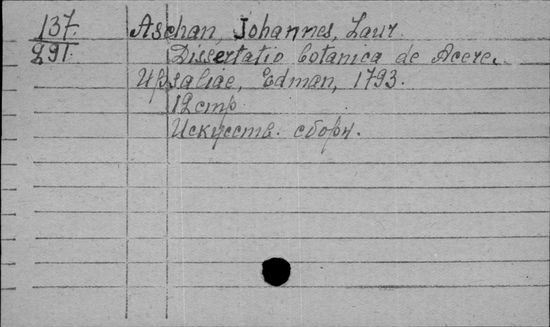 137. Aschan, Johannes, Laur.
291. Dissertatio botanica de Acere.
Upsaliae, Edman, 1793.
12 стр.
Искусств. сборн.